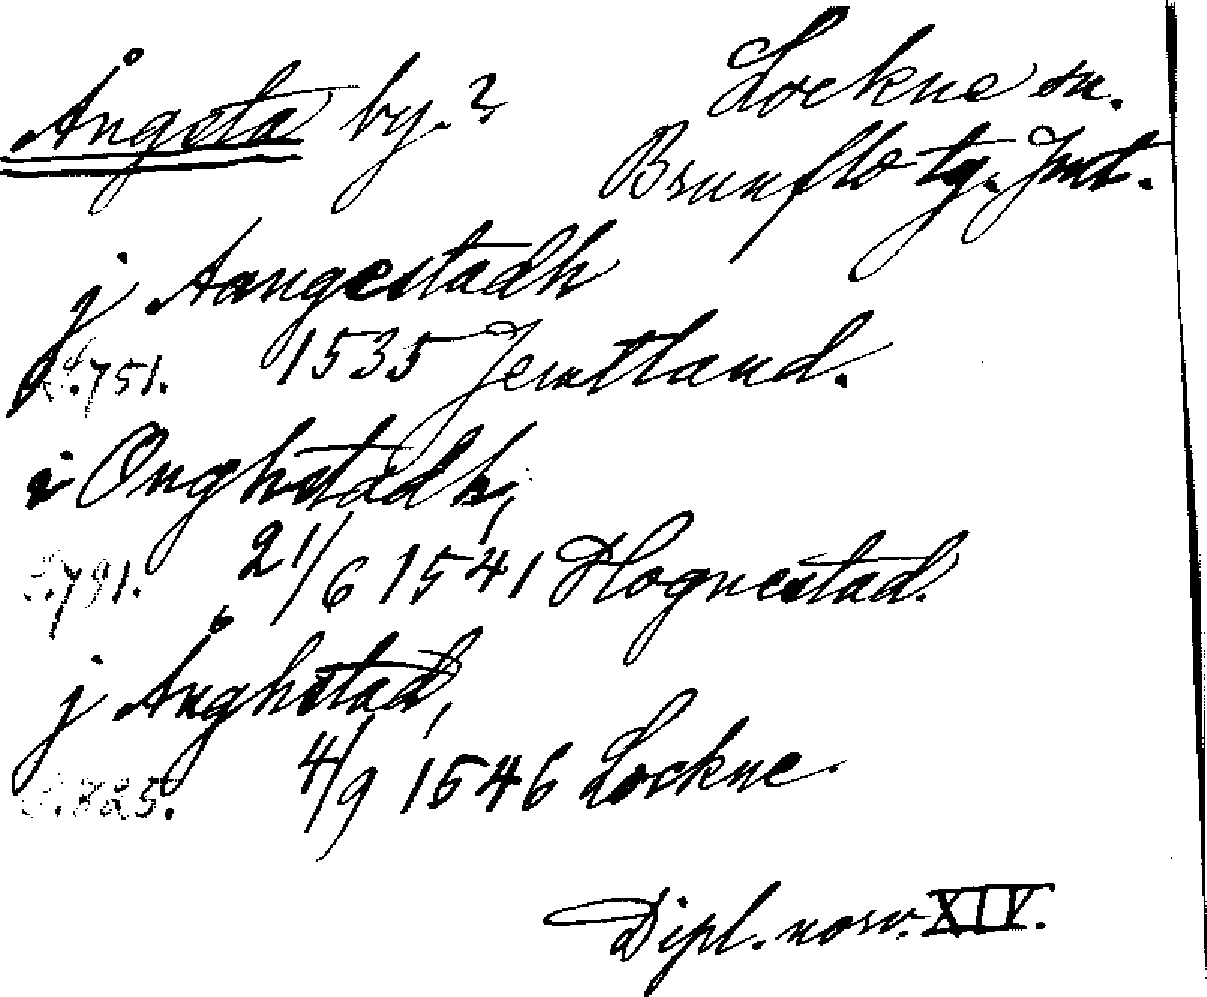 Ångsta by.? Lockne sn.
Brunflo tg. Jmt.
j Aangestadh
S. 751. 1535 Jemtland.
i Onghstadh,
S. 791. 21/6 1541 Hognestad.
j Ånghstad,
S. 825. 4/9 1546 Lockne
Dipl. norv. XIV.